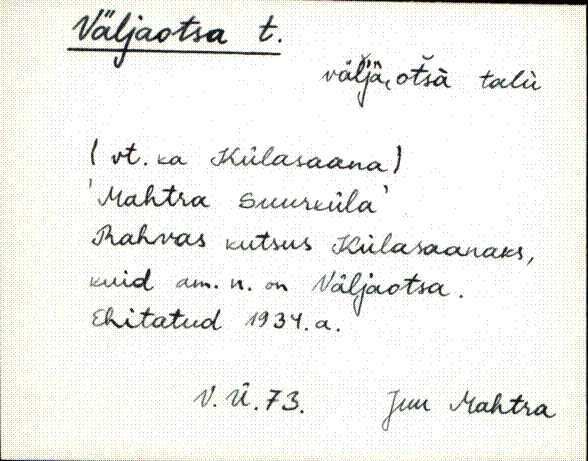 Väljaotsa t.
väĺjä, otsà talu
(vt. ka Külasaana)
'Mahtra Suurküla'
Rahvas kutsus Külasaanaks,
kuid am. n. on Väljaotsa.
Ehitatud 1934. a.
V. Ü. 73. Juu Mahtra